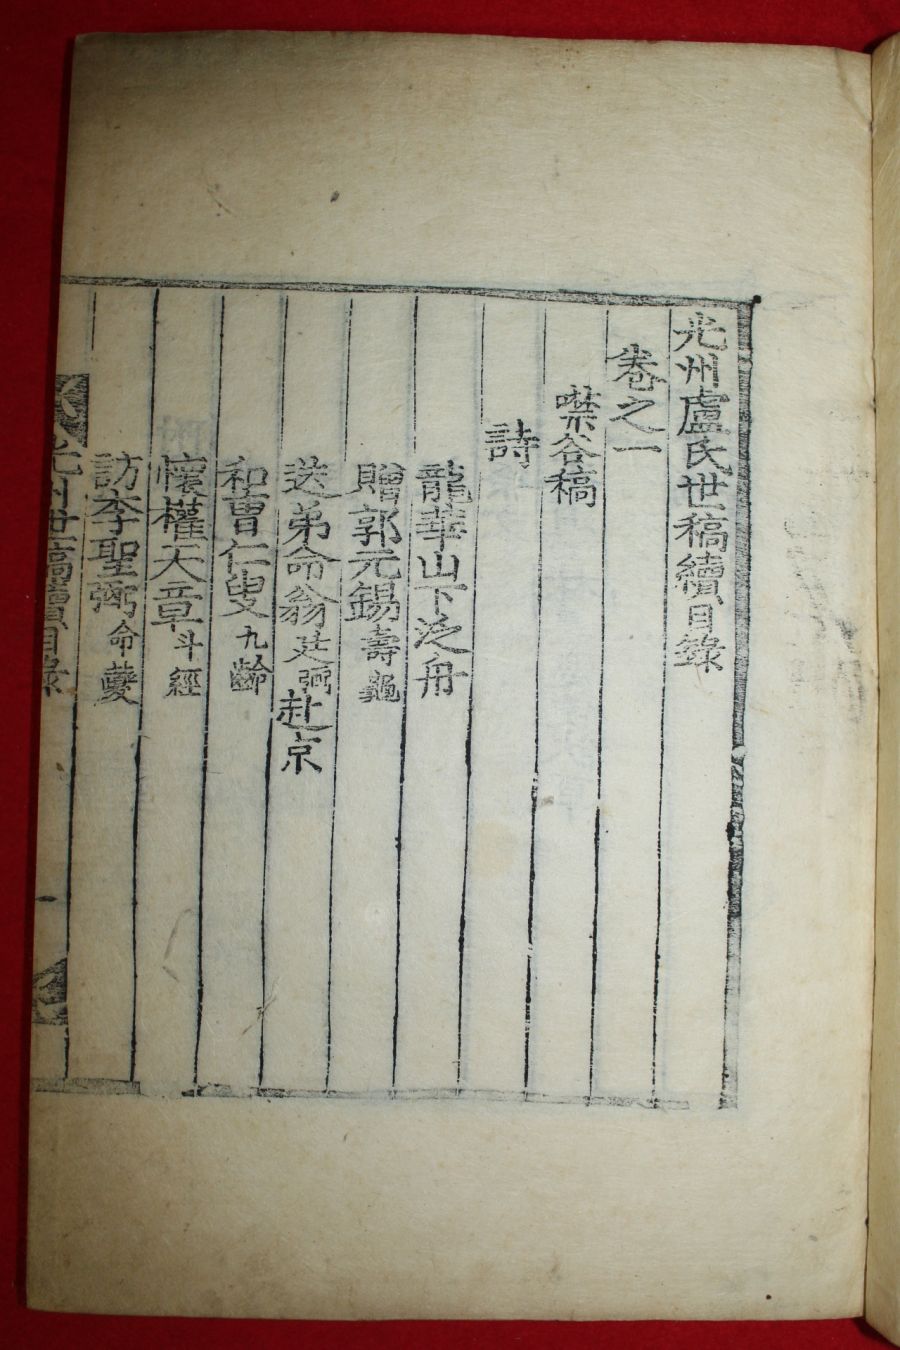 光州盧氏世稿續目錄
卷之一
噤谷稿
詩
龍華山下泛舟
贈郭元錫壽龜
送弟命翁廷弼赴京
和曺仁叟九齡
懷權天章斗經
訪李聖弼命夔
光州世稿續目錄
一